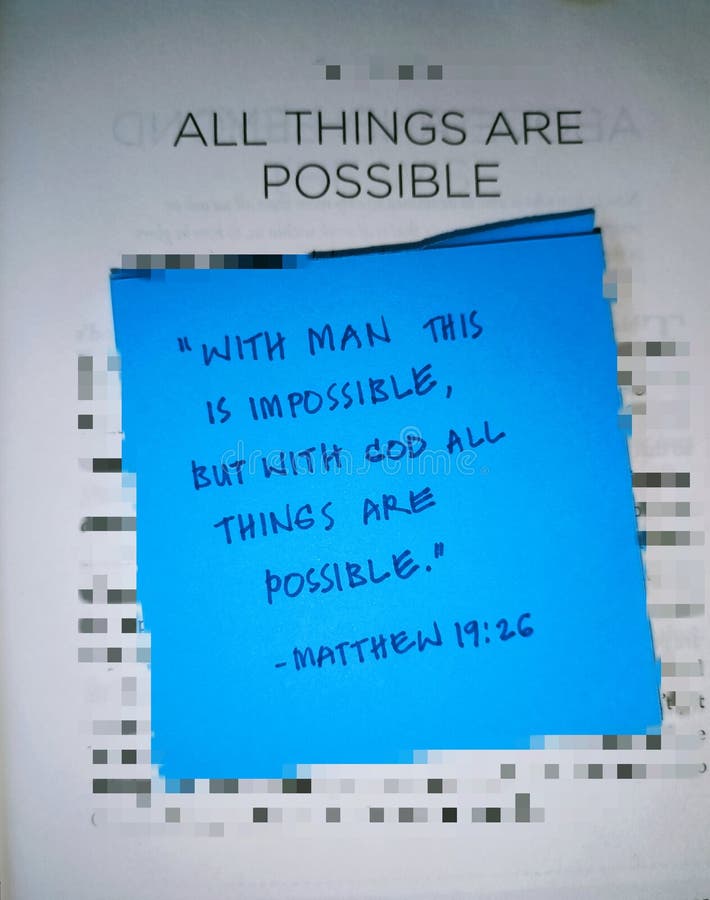 ALL THINGS ARE
POSSIBLE
"WITH MAN THIS
IS IMPOSSIBLE,
BUT WITH GOD ALL
THINGS ARE
POSSIBLE."
-MATTHEW 19:26
dreamstime.com